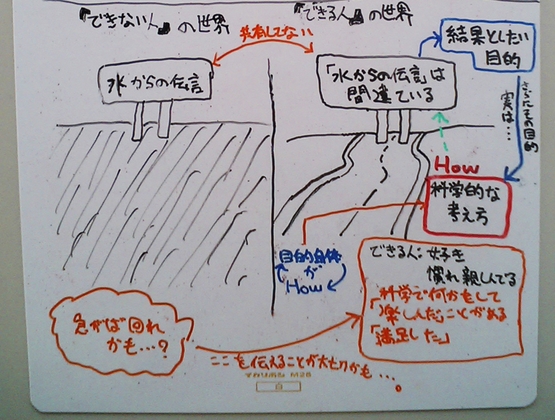 『できない人』の世界
『できる人』の世界
共有してない
水からの伝言
「水からの伝言」は
間違ている
結果としたい
目的
さらにその目的
実は…
How
科学的な
考え方
目的自体
が
How
できる人:好き
慣れ親しんでる
科学で何かをして
「楽しんだ」ことがある
「満足した」
急がば回れ
かも…?
ここを伝えることが大切かも…。